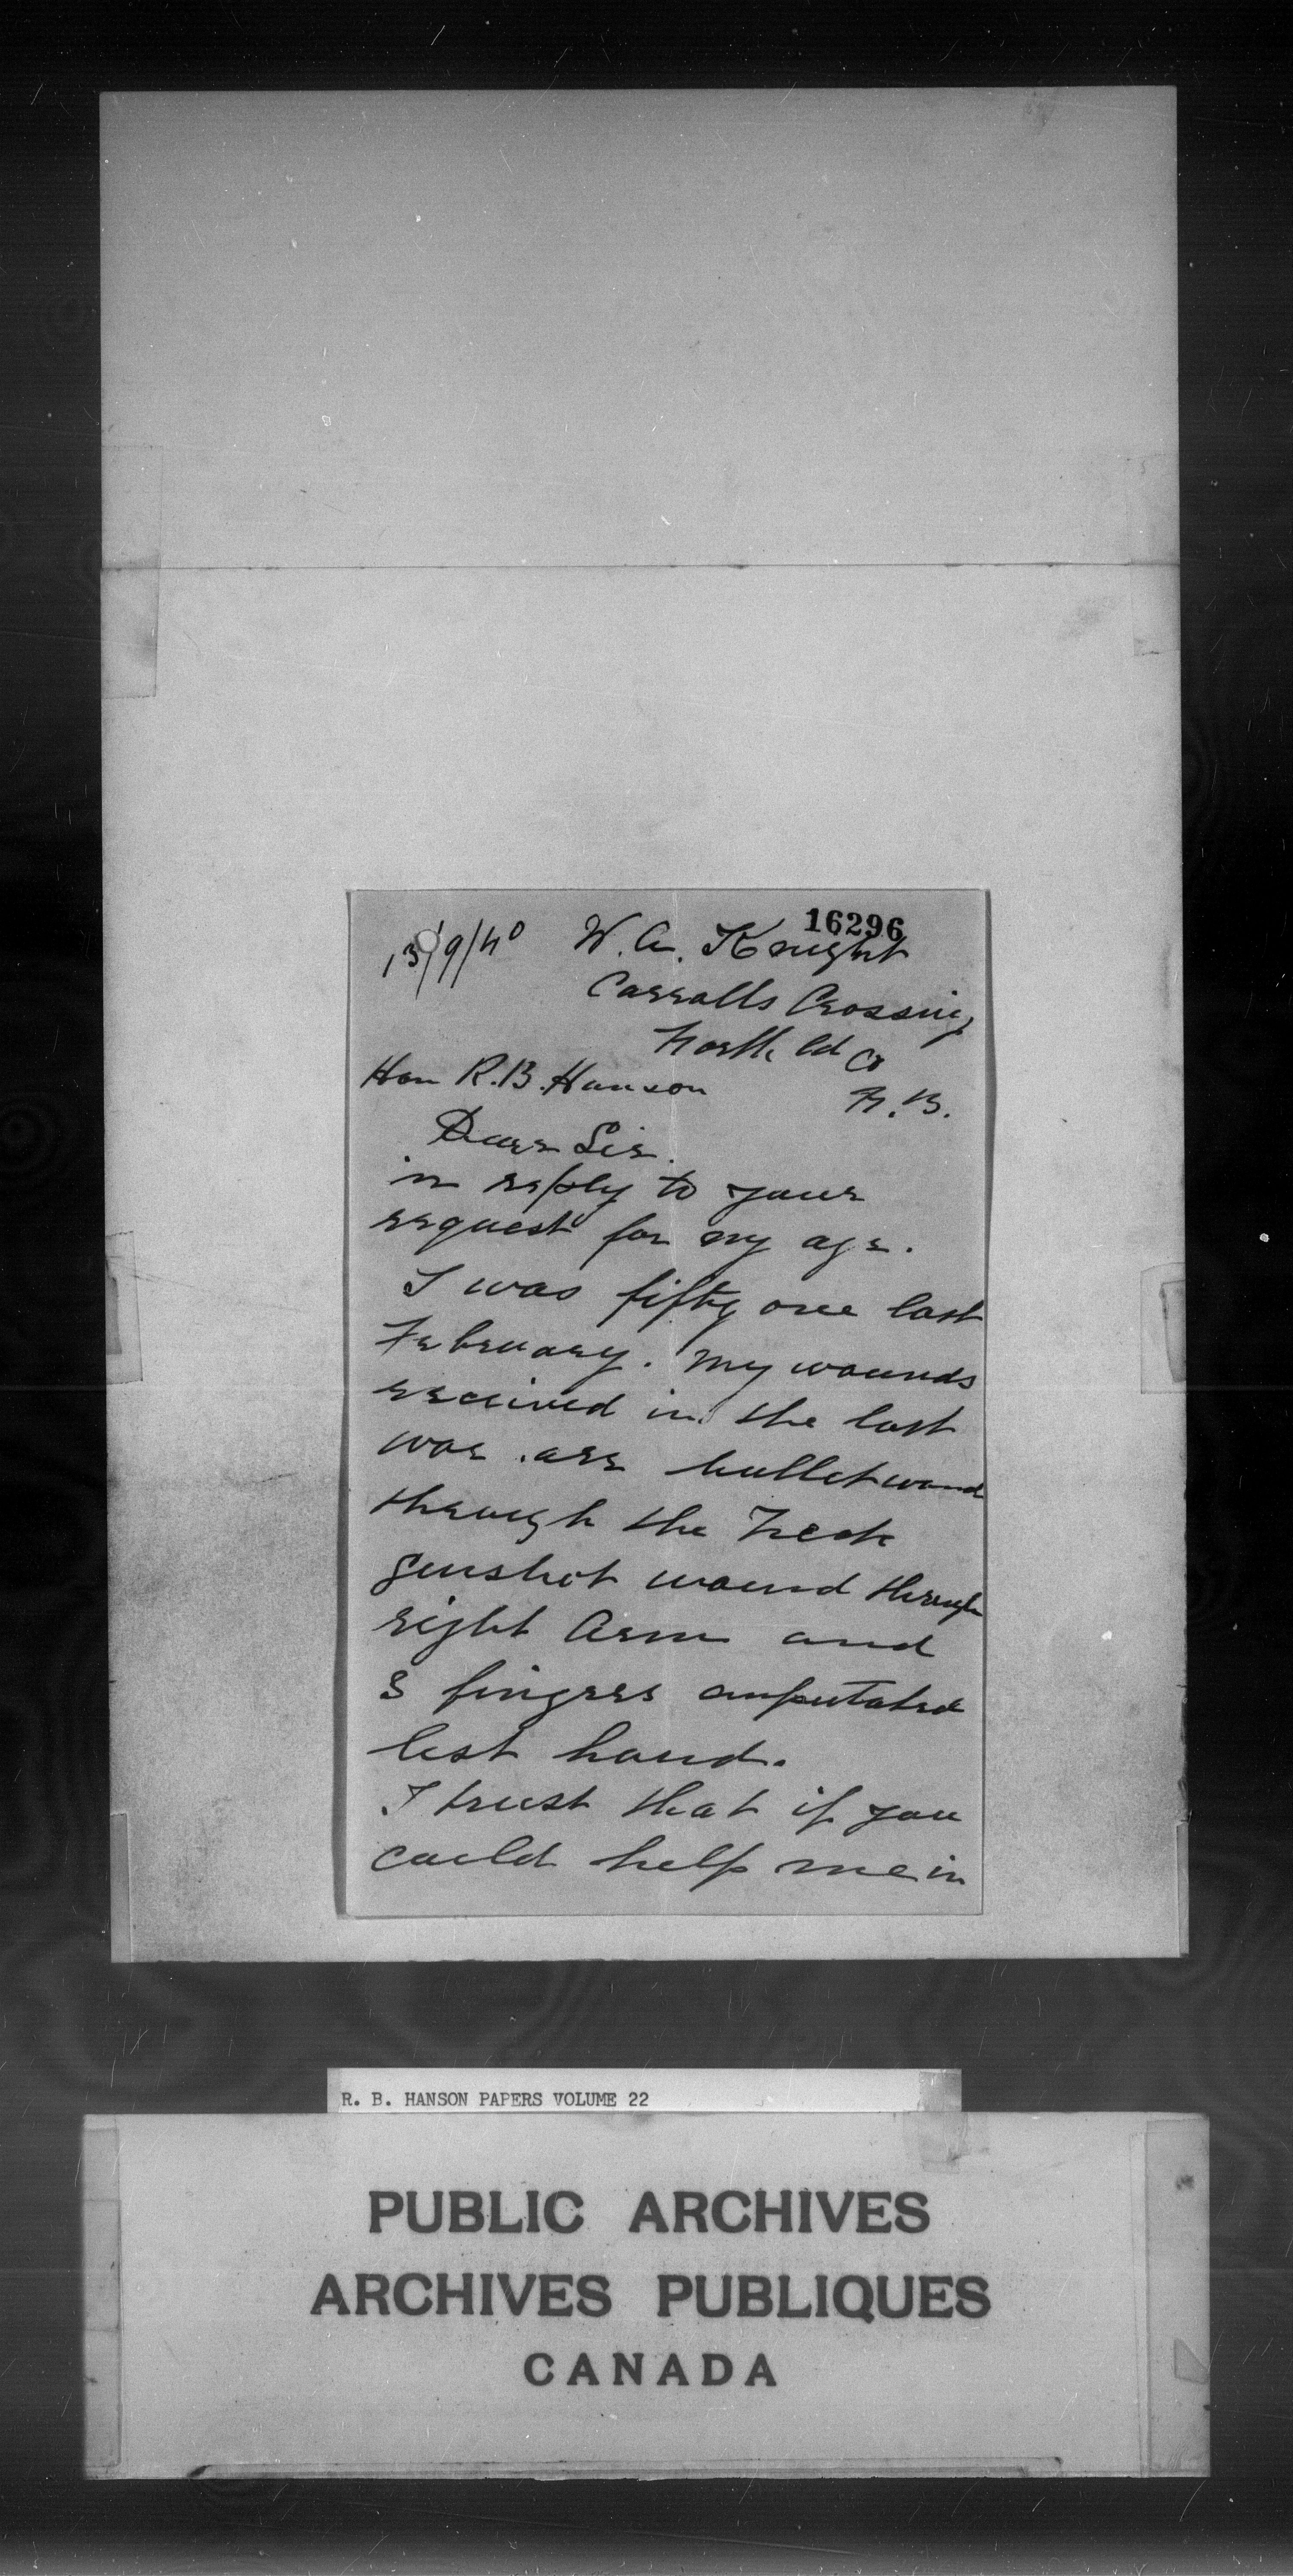 16296
13/9/40 W. A. Knight
Carrolls Crossing
North'ld Co
N.B.
Hon R.B. Hanson
Dear Sir.
in reply to your
request for my age.
I was fifty one last
February. My wounds
received in the last
war are bullet wound
through the Neck
gunshot wound through
right Arm and
3 fingers amputated
left hand.
I trust that if you
could help me in
R. B. HANSON PAPERS VOLUME 22
PUBLIC ARCHIVES
ARCHIVES PUBLIQUES
CANADA